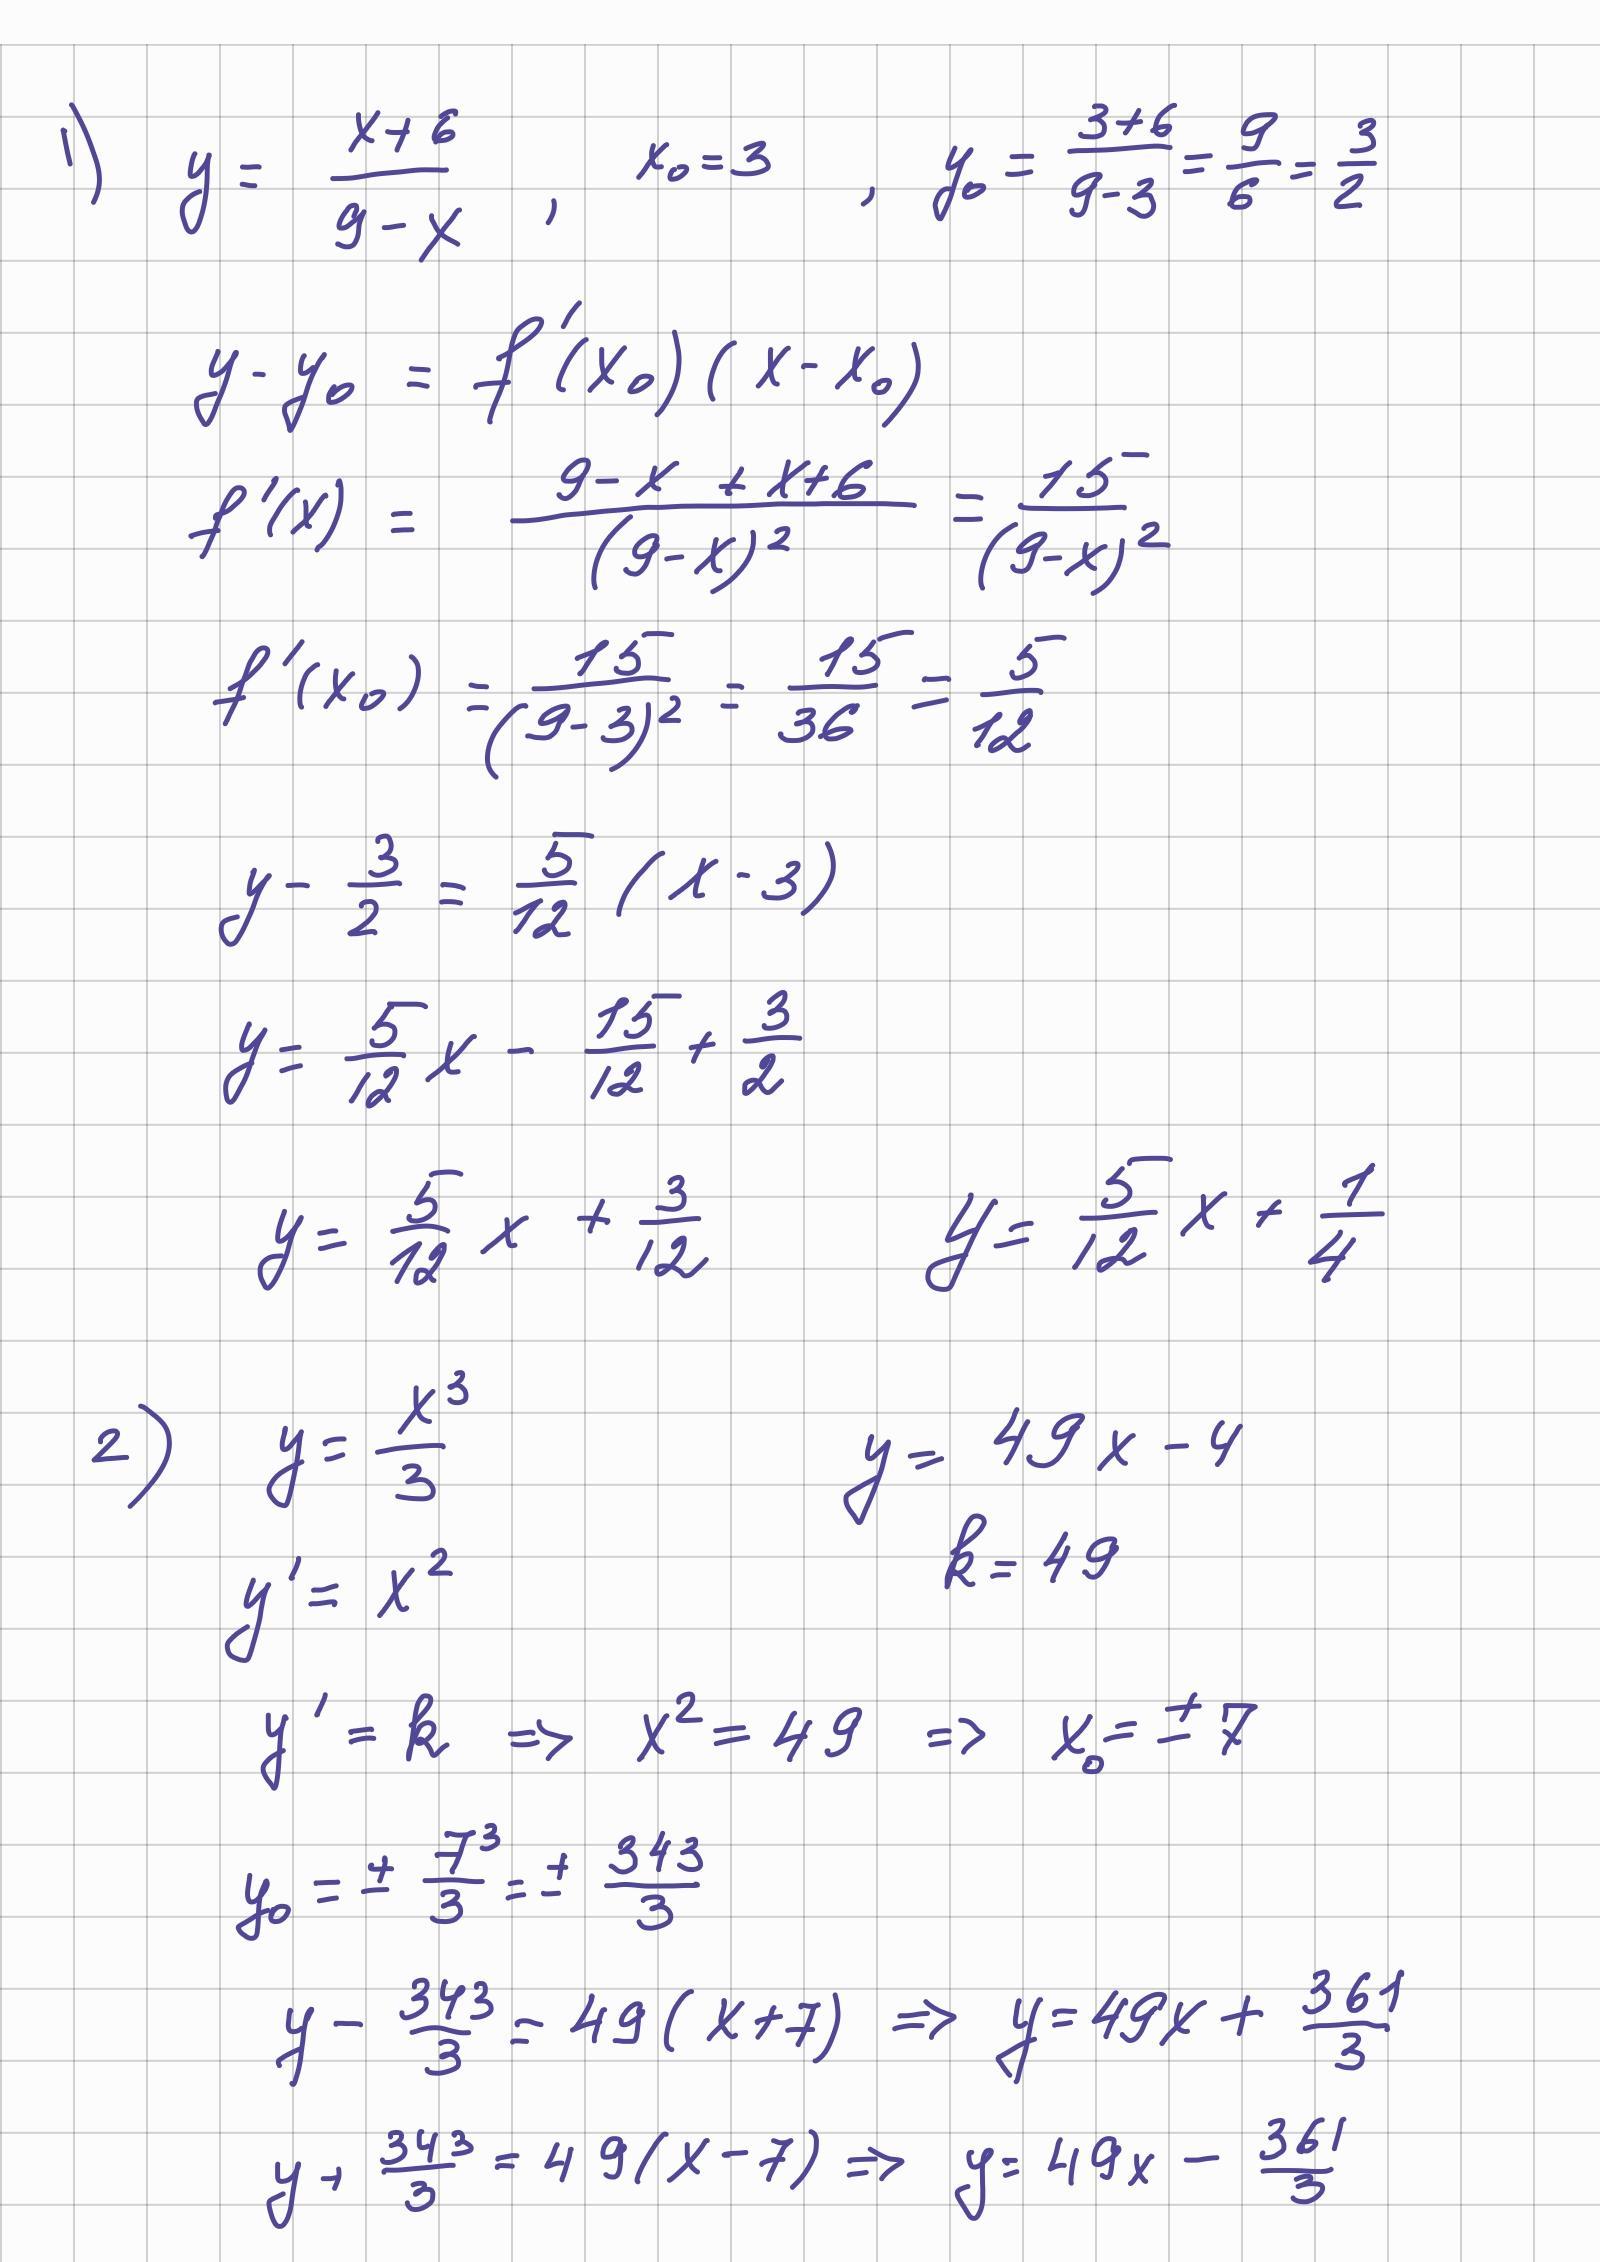 1) y = (x+6)/(9-x) , x₀ = 3 , y₀ = (3+6)/(9-3) = 9/6 = 3/2
y - y₀ = f'(x₀)(x - x₀)
f'(x) = (9-x + x+6)/(9-x)² = 15/(9-x)²
f'(x₀) = 15/(9-3)² = 15/36 = 5/12
y - 3/2 = 5/12 (x - 3)
y = 5/12 x - 15/12 + 3/2
y = 5/12 x + 3/12 y = 5/12 x + 1/4
2) y = x³/3 y = 49x - 4
k = 49
y' = x²
y' = k => x² = 49 => x₀ = ± 7
y₀ = ± 7³/3 = ± 343/3
y - 343/3 = 49(x+7) => y = 49x + 361/3
y + 343/3 = 49(x-7) => y = 49x - 361/3